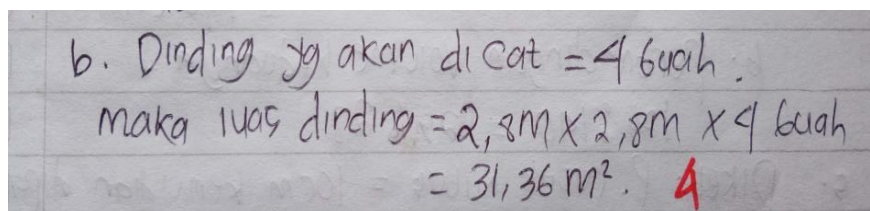 b. Dinding yg akan di cat = 4 buah.
maka luas dinding = 2,8m x 2,8m x 4 buah
= 31,36 m². 4